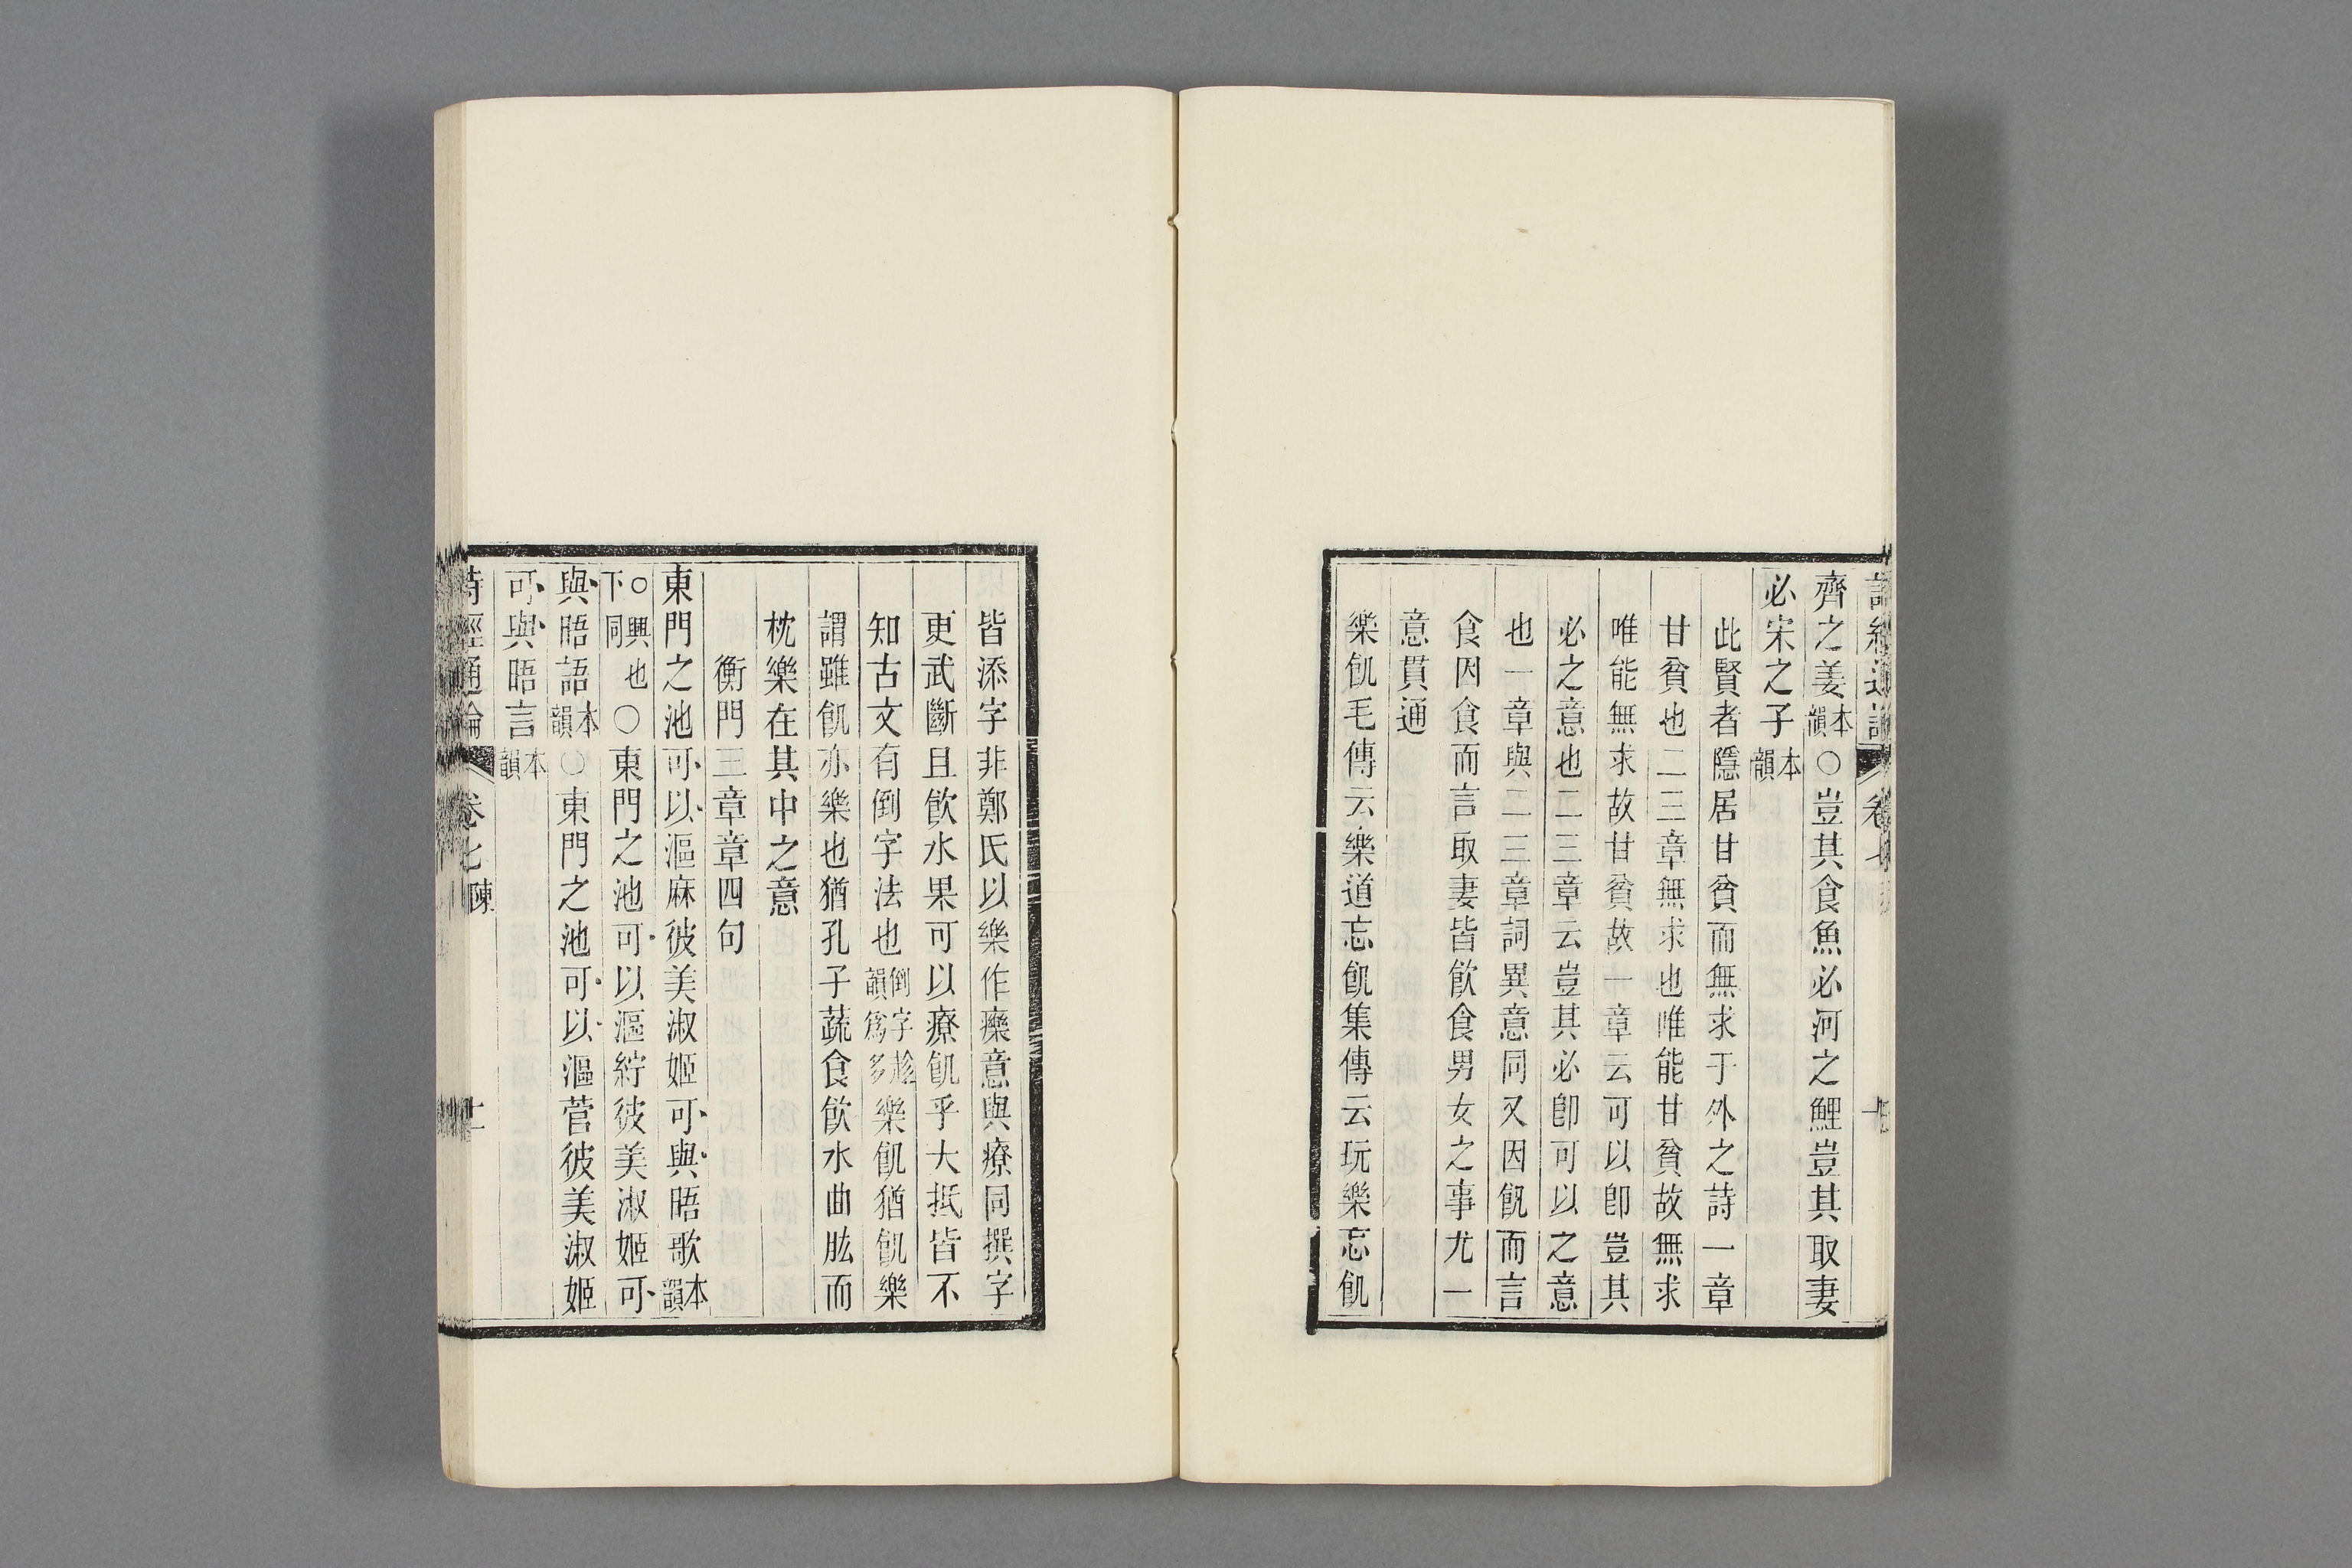 詩經通論 卷七
齊之姜本韻○豈其食魚必河之鯉豈其取妻
必宋之子本韻
此賢者隱居甘貧而無求于外之詩一章
甘貧也二三章無求也唯能甘貧故無求
唯能無求故甘貧故一章云可以卽豈其
必之意也二三章云豈其必卽可以之意
也一章與二三章詞異意同又因飢而言
食因食而言取妻皆飲食男女之事尤一
意貫通
樂飢毛傳云樂道忘飢集傳云玩樂忘飢
皆添字非鄭氏以樂作𤻲意與療同撰字
更武斷且飲水果可以療飢乎大抵皆不
知古文有倒字法也倒字趁韻爲多樂飢猶飢樂
謂雖飢亦樂也猶孔子蔬食飲水曲肱而
枕樂在其中之意
衡門三章章四句
東門之池可以漚麻彼美淑姬可與晤歌本韻
○興也下同○東門之池可以漚紵彼美淑姬可
與晤語本韻○東門之池可以漚菅彼美淑姬
可與晤言本韻
詩經通論 卷七 陳 十一